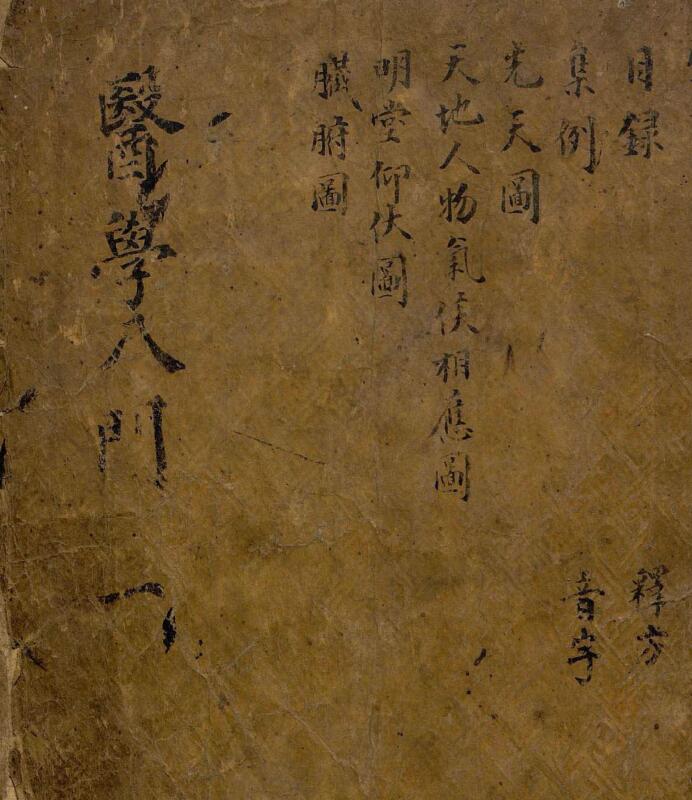 目録
集例
先天圖
天地人物氣候相應圖
明堂仰伏圖
臓腑圖
釋方
音字
醫學入門 一